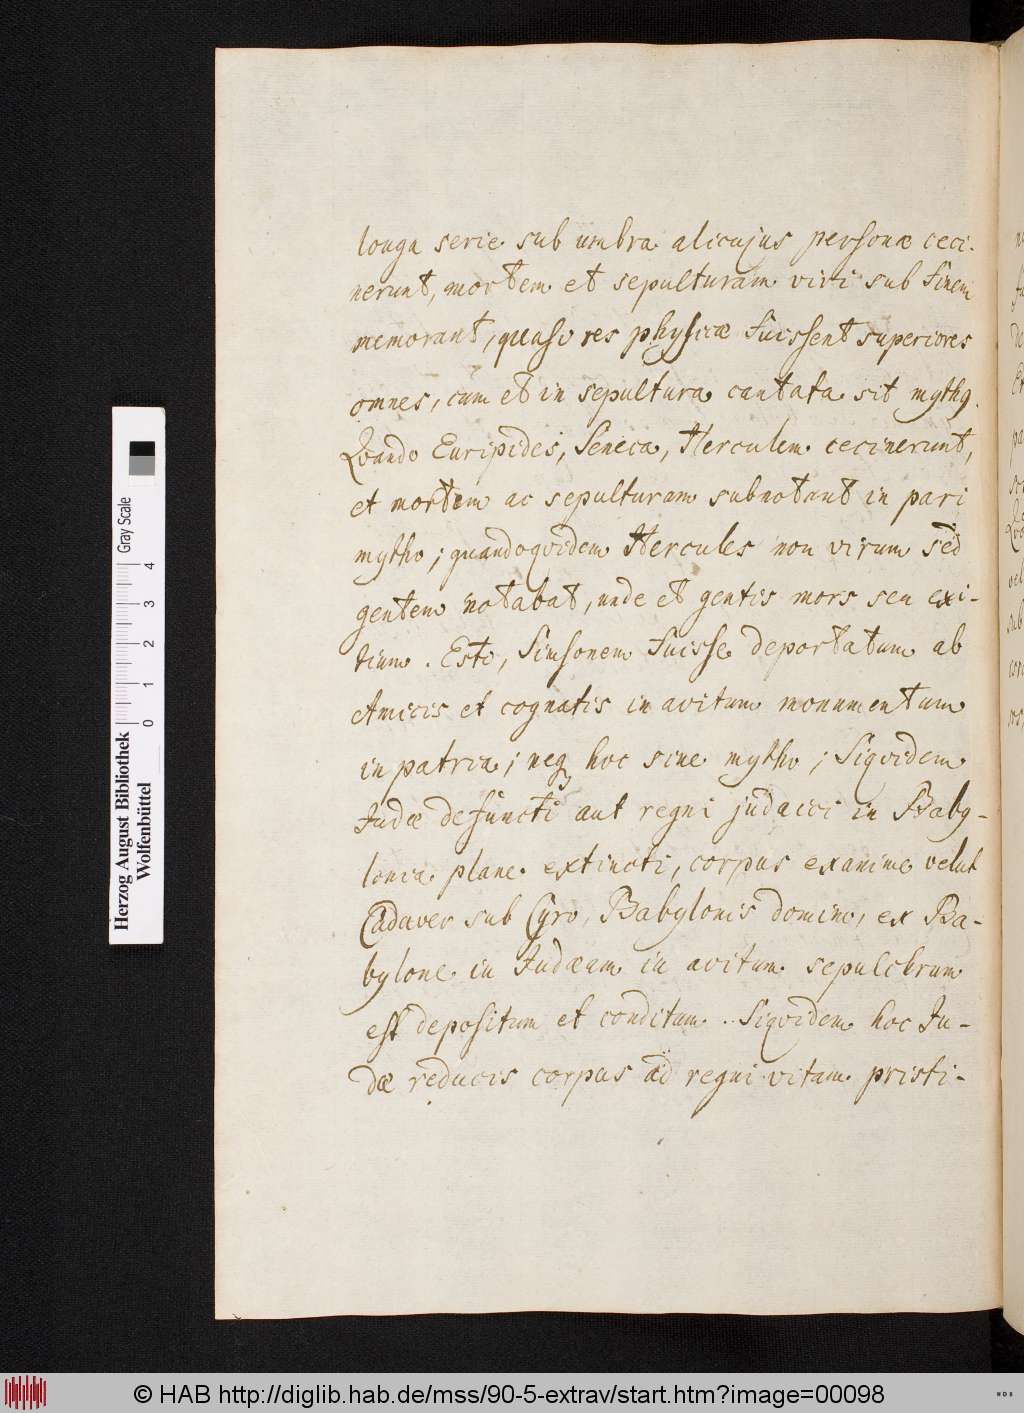 longa serie sub umbra alicujus personæ ceci-
nerunt, mortem et sepulturam viri sub finem
memorant, quasi res physicæ fuissent superiores
omnes, cum et in sepultura cantata sit mythq.
Qvando Euripides, Seneca, Herculem cecinerunt,
et mortem ac sepulturam subnotant in pari
mytho; quandoqvidem Hercules non virum sed
gentem notabat, unde et gentis mors seu exi-
tium. Esto, Simsonem fuisse deportatum ab
Amicis et cognatis in avitum monumentum
in patria; neq hoc sine mytho; Siqvidem
Judæ defuncti aut regni judaici in Baby-
lonia plane extincti, corpus exanime velut
Cadaver sub Cyro, Babylonis domino, ex Ba-
bylone in Judæam in avitum sepulchrum
est depositum et conditum. Siqvidem hoc Ju-
dæ reducis corpus ad regni vitam pristi-
Herzog August Bibliothek
Wolfenbüttel
Gray Scale
0 1 2 3 4
© HAB http://diglib.hab.de/mss/90-5-extrav/start.htm?image=00098